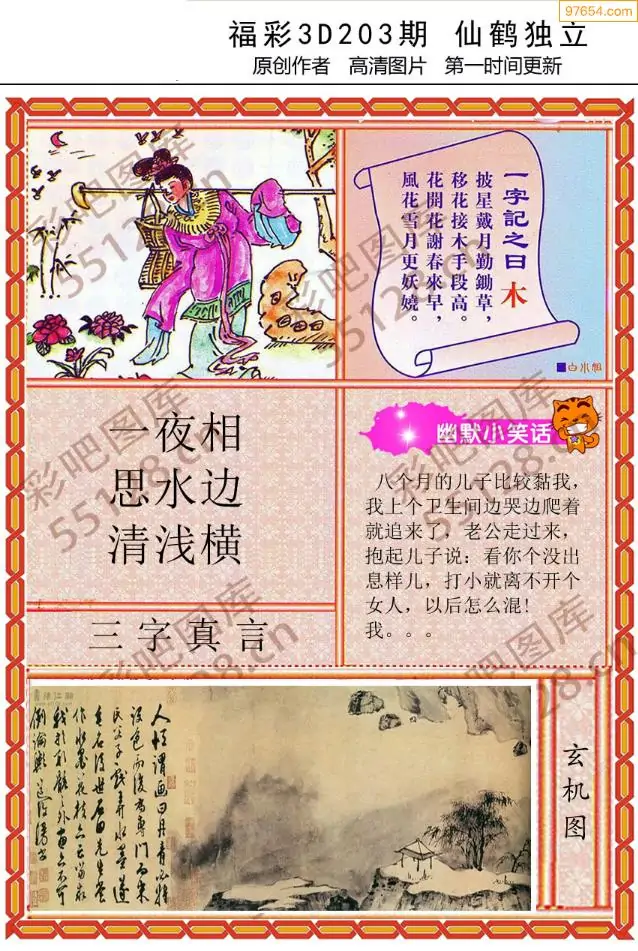 97654.com
福彩3D203期 仙鹤独立
原创作者 高清图片 第一时间更新
一字記之曰木
披星戴月勤鋤草，
移花接木手段高。
花開花謝春來早，
風花雪月更妖嬈。
白小姐
一夜相
思水边
清浅横
三字真言
幽默小笑话
八个月的儿子比较黏我，
我上个卫生间边哭边爬着
就追来了，老公走过来，
抱起儿子说：看你个没出
息样儿，打小就离不开个
女人，以后怎么混！
我。。。
玄机图
彩吧图库
55128.cn